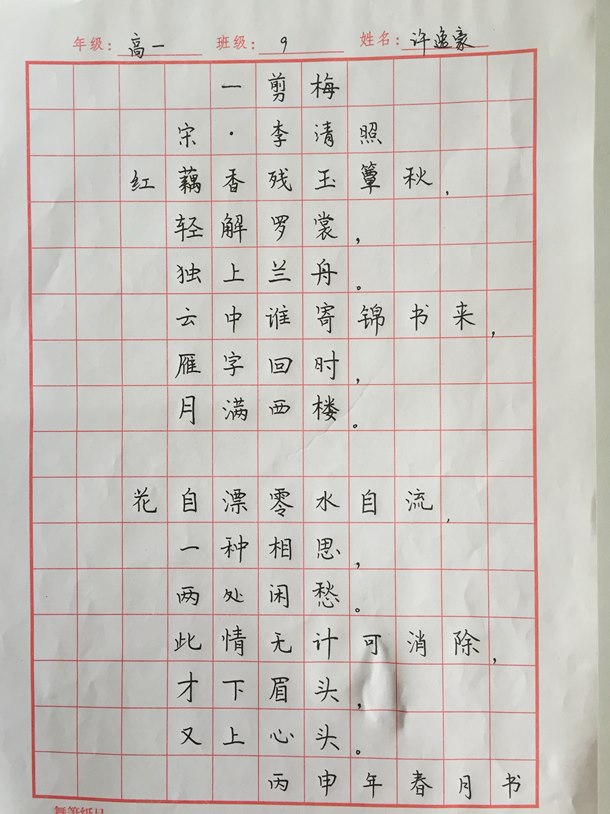 年级：高一 班级：9 姓名：许逸豪
一剪梅
宋·李清照
红藕香残玉簟秋，
轻解罗裳，
独上兰舟。
云中谁寄锦书来，
雁字回时，
月满西楼。
花自漂零水自流，
一种相思，
两处闲愁。
此情无计可消除，
才下眉头，
又上心头。
丙申年春月书